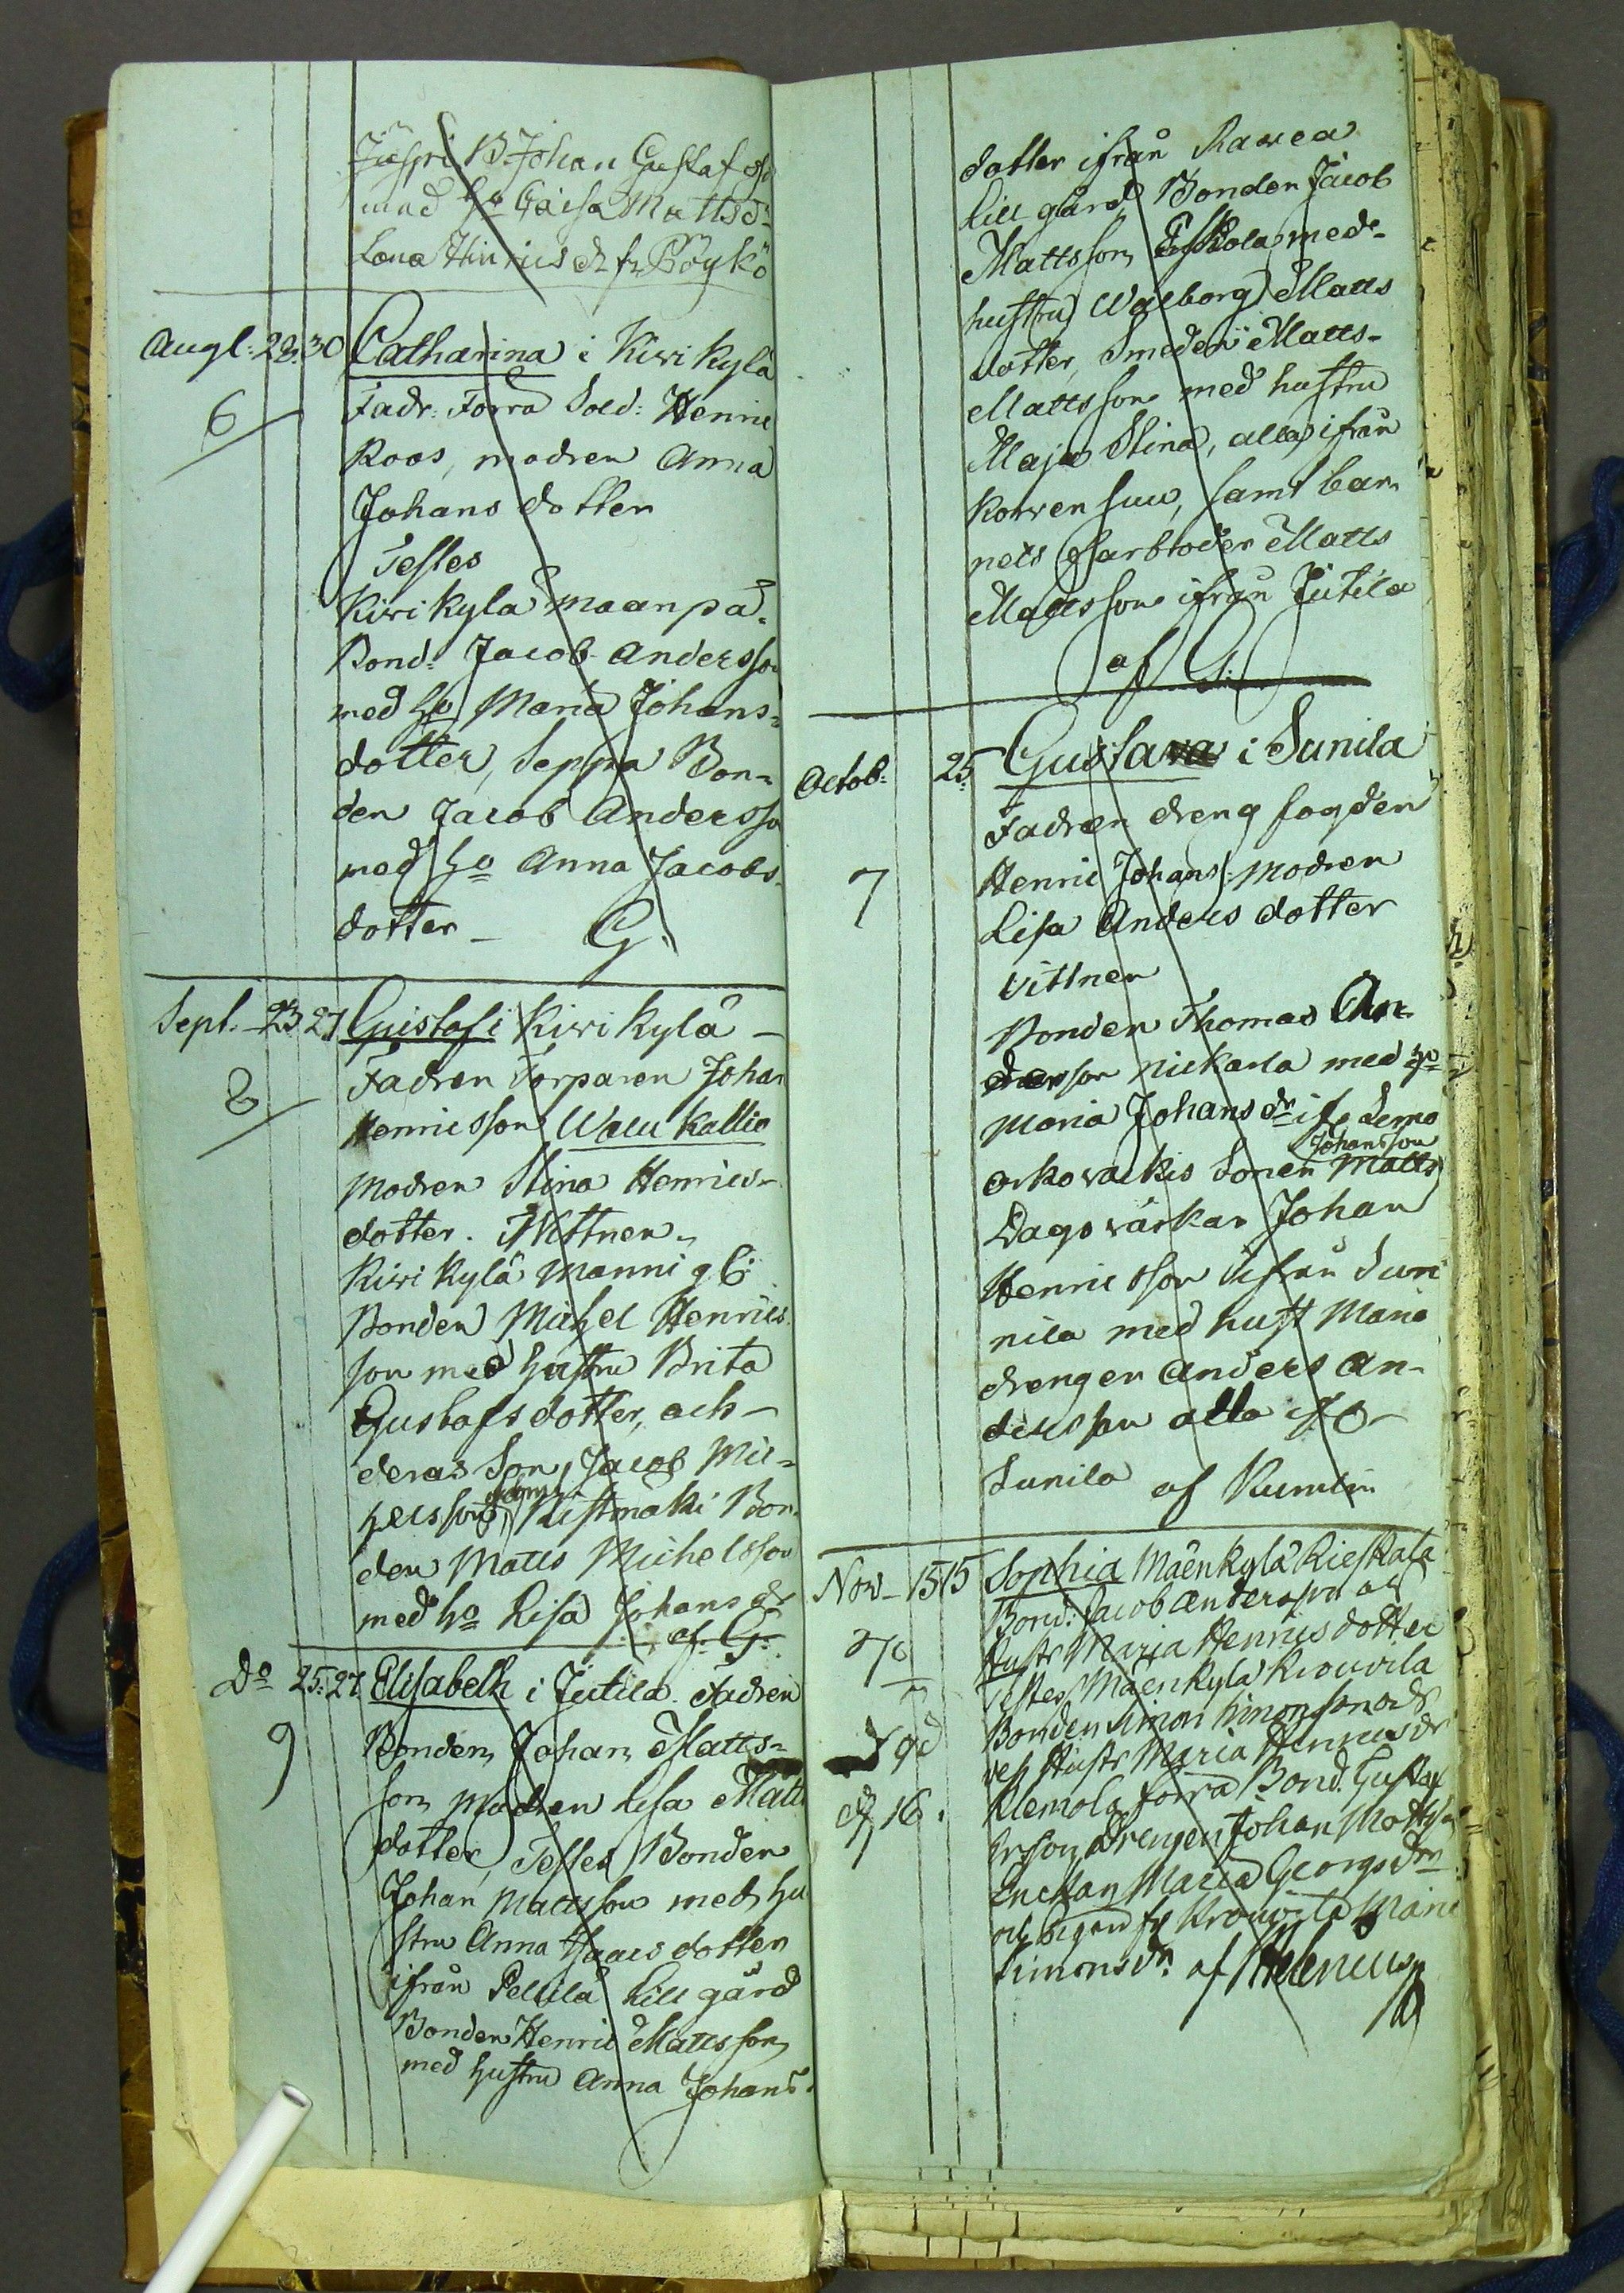 B. Johan Gustaf
med Ho Caisa Mattsd:
Lena Hinricsdr fr Pöykö
Augt: 29. 30 Catharina i Kivikylä
6 Fadr: Förra Sold: Henric
Roos, modren Anna
Johans dotter
Testes
Kivikylä Maanpä
Bond: Jacob Andersson
med Ho Maria Johans-
dotter, Seppä Bon-
den Jacob Andersso
med Ho Anna Jacobs-
dotter – G.
Sept. 23 27 Gustaf i Kivikylä –
8 Fadren Torparen Johan
Henricsson Walukallio
Modren Stina Henrics-
dotter. Wittnen
Kivikylä Manni g C:
Bonden Michel Henrics
son med hustru Brita
Gustafsdotter, och –
deras Son, Jacob Mic-
helsson, Ristimäki Bon-
den Matts Michelsson
med Ho Lisa Johans dr
af G.
Do 25. 27. Elisabeth i Jutila. Fadren
9 Bonden Johan Matts-
son, Modren Lisa Matts
dotter, Testes Bonden
Johan Mattsson med hu
stru Anna Isaacs dotter
ifrån Pellilä Lill gård
Bonden Henric Mattsson
med hustru Anna Johans-
dotter ifrån Ravea
Lill gård Bonden Jacob
Mattsson Eskola med
hustru Walborg Matts
dotter, Smeden Matts
Mattsson med hustru
Maja Stina, alla ifrån
Korvensuu, samt bar-
nets farbroder Matts
Mattsson ifrån Jutila
af G.
Octob: 25 Gustava i Sunila
Fadren dreng fogden
7 Henric Johanss: Modren
Lisa Anders dotter
Vittnen
Bonden Thomas An-
dersson Nickarla med Ho
Maria Johans dr if. Lemo
Johansson
Sonen Matts
Dagsvärkar Johan
Henricsson ifrån Suni
nila med hust Maria
drengen Anders An-
dersson alla
Sunila af Rumlin
Nov – 15 15 Sophia Mäenkylä Rieskala
Bond: Jacob Andersson och
Hustr Maria Henricsdotter
Testes Mäenkylä Krouvila
Bonden Simon Simonsson och
des Hustr Maria Henricsdr
16. Klemola förra Bond. Gustaf
Ersson Drengen Johan Mattss
Enckan Maria Georgsdr
och Pigan fr Krouvila Maria
Simonsdr. af Helenius